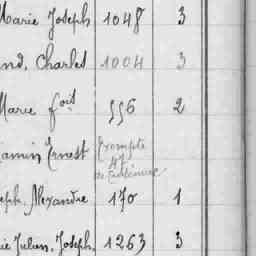 Marie Joseph 1048 3
and, Charles 1004 3
Marie fois 556 2
jamin Ernest Exempté
Art
de
seph, Alexandre 170 1
ie Julien, Joseph, 1263 3